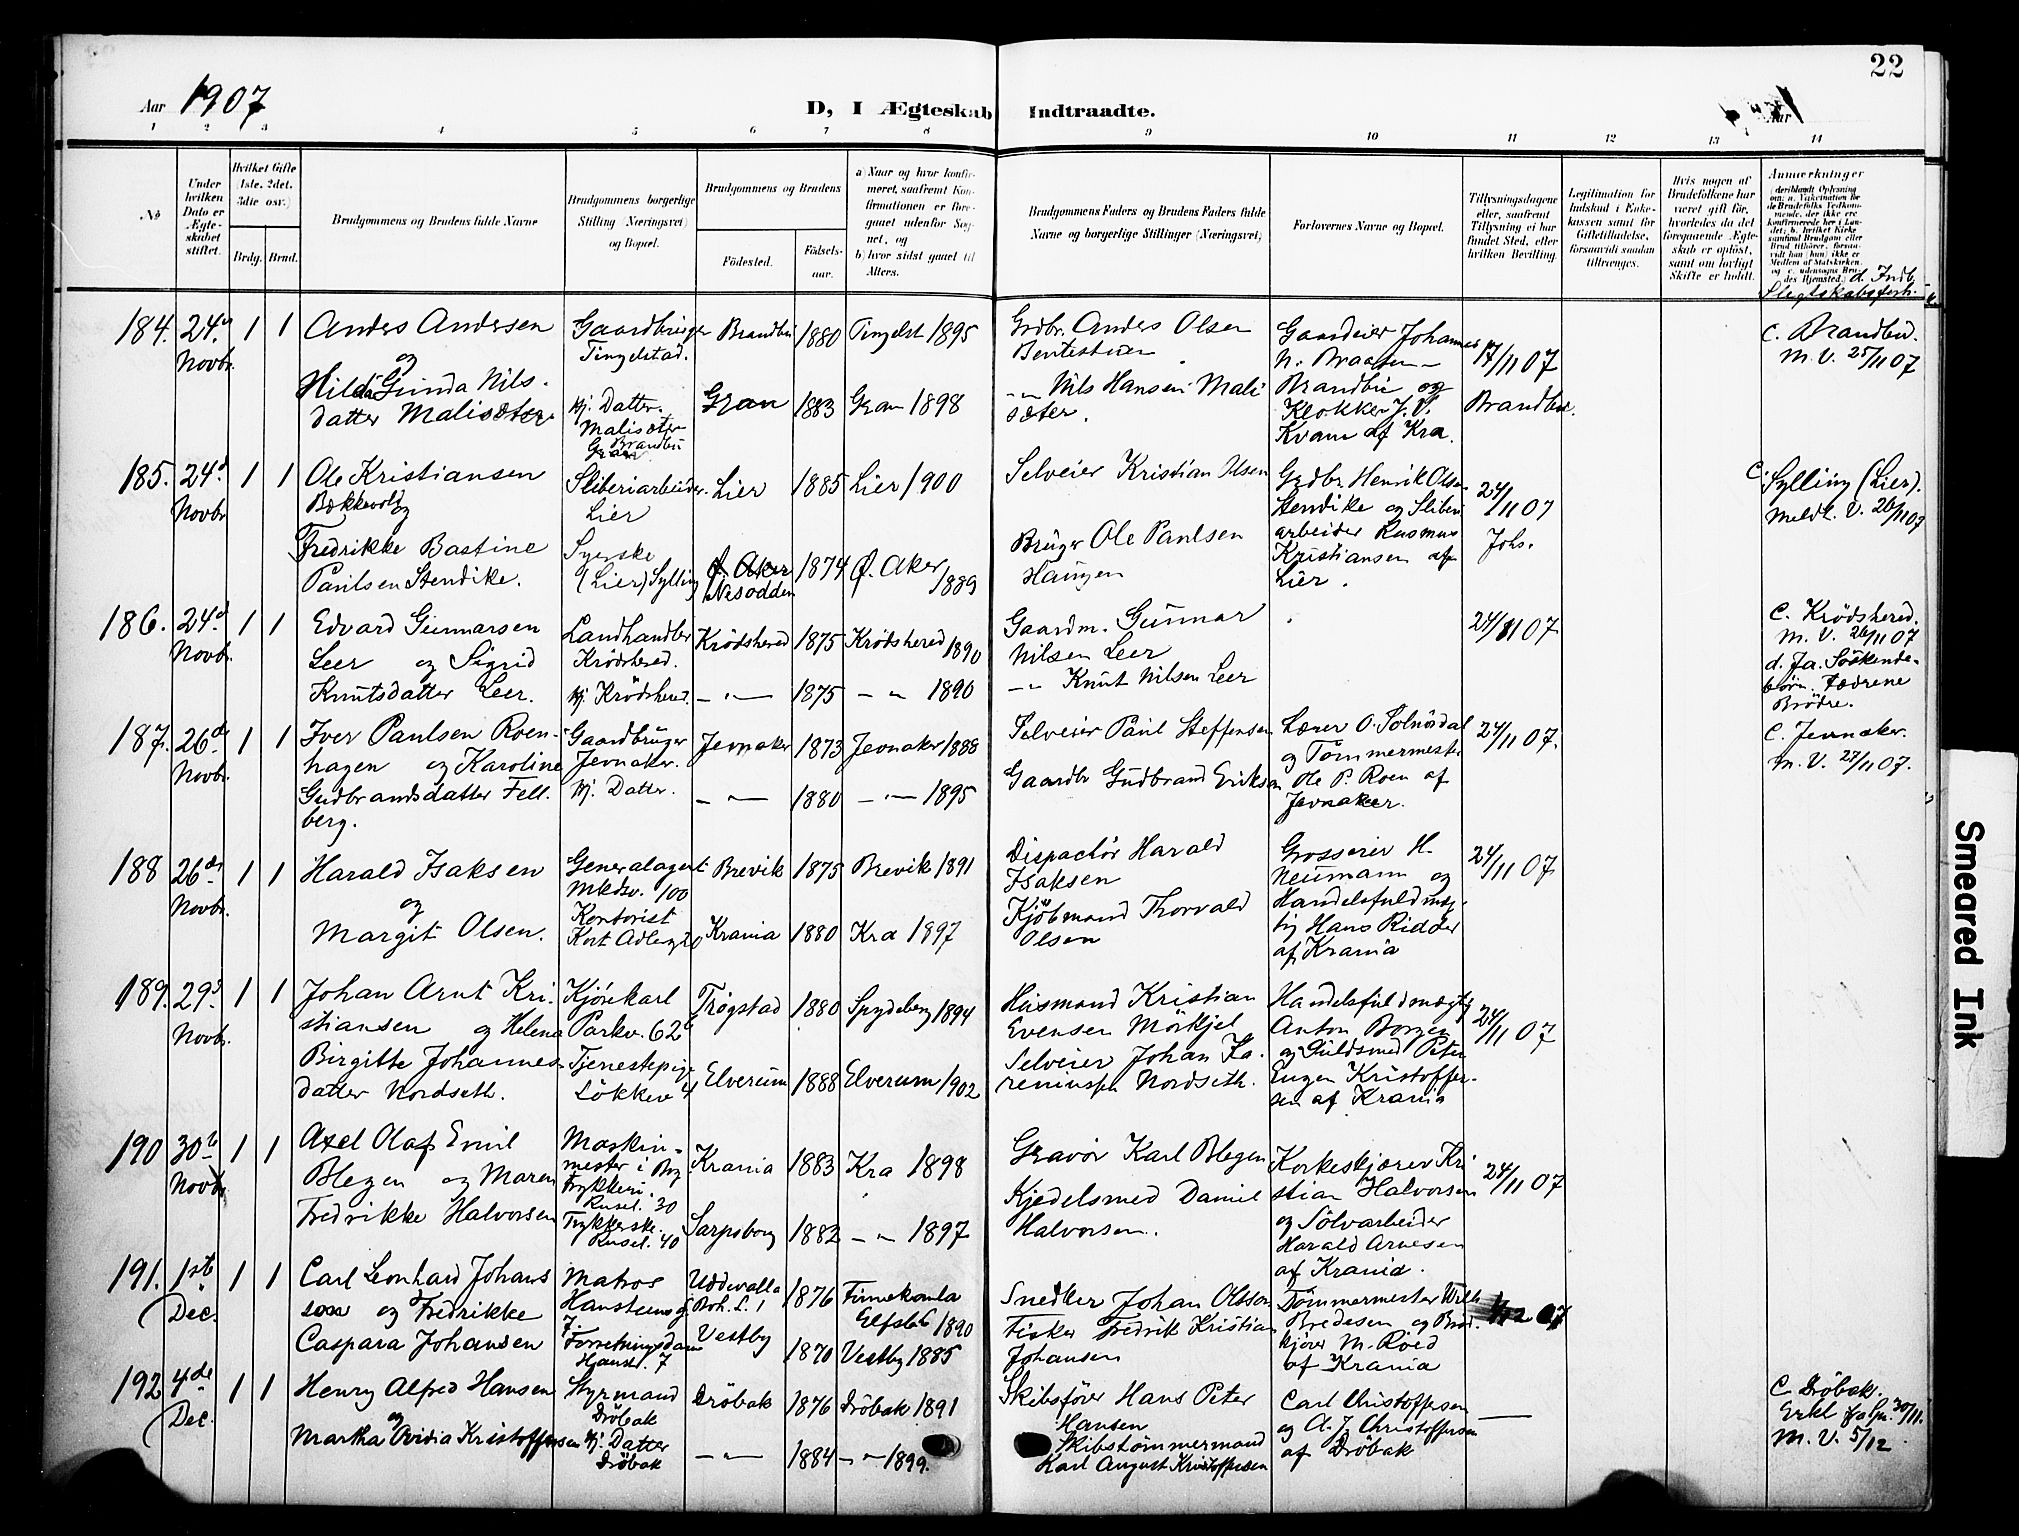 22
Aar 1907
D, I Ægteskab Indtraadte.
Aar
1 2 3 4 5 6 7 8 9 10 11 12 13 14
No
Under hvilken Dato er Ægteskabet stiftet.
Hvilket Gifte (1ste, 2det, 3die osv.)
Brdg. Brud.
Brudgommens og Brudens fulde Navne
Brudgommens borgerlige Stilling (Næringsvei) og Bopæl.
Brudgommens og Brudens
Födested.
Födsels-aar.
a) Naar og hvor konfirmeret, saafremt Konfirmationen er foregaaet udenfor Sognet, og
b) hvor sidst gaaet til Alters.
Brudgommens Faders og Brudens Faders fulde Navne og borgerlige Stillinger (Næringsvei)
Forlovernes Navne og Bopæl.
Tillysningsdagene eller, saafremt Tillysning ei har fundet Sted, efter hvilken Bevilling.
Legitimation for Indskud i Enkekassen samt for Giftetilladelse, forsaavidt saadan tiltrænges.
Hvis nogen af Brudefolkene har været gift för, hvorledes da det foregaaende Ægteskab er oplöst, samt om lovligt Skifte er holdt.
Anmærkninger
d. Indb. Slegtskabsforh.
184. 24de Novbr. 1 1
Anders Andersen
og
Hilda Gunda Nils-
datter Malisæter
Gaardbruger
Tingelstad.
Hj. Datter.
Malisæter
Brandbu
Gran
Brandbu 1880 Tingelst 1895
Gran 1883 Gran 1898
Grdbr. Anders Olsen
Bentestuen
— " — Nils Hansen Mali
sæter.
Gaardeier Johannes
N. Braaten —
Brandbu og
Klokker J. V.
Kvam af Kra.
17/11 07
Brandbu.
C. Brandbu.
M. V. 25/11 07
185. 24d Novbr 1 1
Ole Kristiansen
Bækkevold
og
Fredrikke Bastine
Paulsen Stendike.
Sliberiarbeider.
Lier
Syerske
(Lier) Sylling
Lier 1885 Lier 1900
Ø. Aker
Nesodden 1874 Ø. Aker 1889
Selveier Kristian Olsen
Bruger Ole Paulsen
Haugen
Grdbr. Henrik Olsen
Stendike og Sliberi
arbeider Rasmus
Kristiansen af
Lier.
24/11 07
Johs.
C. Sylling (Lier).
Meldt. V. 26/11 07
186. 24d Novbr. 1 1
Edvard Gunnarsen
Leer og Sigrid
Knutsdatter Leer.
Landhandler
Krödshered.
Hj. Krödshered.
Krödshered 1875 Krödshered 1890
— " — 1875 — " 1890
Gaardm. Gunnar
Nilsen Leer
— " Knut Nilsen Leer
24/11 07
C. Krödshered.
M. V. 26/11 07
d. Ja. Söskende-
börn. Fædrene
Brödre.
187. 26de Novbr. 1 1
Iver Paulsen Roen-
hagen og Karoline
Gudbrandsdatter Fell-
berg.
Gaardbruger
Jevnaker.
Hj. Datter.
Jevnaker 1873 Jevnaker 1888
— " — 1880 — " — 1895
Selveier Paul Steffensen
Gaardbr Gudbrand Eriksen
Lærer O. Solnördal
og Tömmermester
Ole P. Roen af
Jevnaker.
24/11 07.
C. Jevnaker.
M. V. 27/11 07.
188 26de Novbr. 1 1
Harald Isaksen
og
Margit Olsen.
Generalagent
Mkdsv. 100
Kontorist
Kort Adlersgt
Brevik 1875 Brevik 1891
Krania 1880 Kra 1897
Dispachör Harald
Isaksen
Kjöbmand Thorvald
Olsen
Grosserer H.
Neumann og
Handelsfuldmæg-
tig Hans Ridder
af Krania
24/11 07
189. 29de Novbr. 1 1
Johan Arnt Kri-
stiansen og Helena
Birgitte Johannes-
datter Nordseth.
Kjörekarl
Parkv. 62
Tjenestepige
Lökkev
Trögstad 1880 Spydeberg 1894
Elverum 1888 Elverum 1902
Husmand Kristian
Evensen Mörkjel
Selveier Johan Za-
reniussen Nordseth.
Handelsfuldmægtig
Anton Borgen
og Guldsmed Peter
Eugen Kristoffer-
sen af Krania
24/11 07
190 30te Novbr 1 1
Axel Olaf Emil
Blegen og Maren
Fredrikke Halvorsen
Maskin-
mester i Bog
trykkeri.
Rusel. 30
Trykkerske.
Rusel. 40
Krania 1883 Kra 1898
Sarpsborg 1882 — " 1897
Gravör Karl Blegen
Kjedelsmed Daniel
Halvorsen.
Korkeskjærer Kri
stian Halvorsen
og Sölvarbeider
Harald Arnesen
af Krania.
24/11 07
191. 1ste Dec. 1 1
Carl Leonhard Johans
son og Fredrikke
Caspara Johansen
Matros
Hansteensg
7.
Forretningsdame
Hanst. 7
Uddevalla
Boh. L. 1876
Elfsb 1890
Vestby 1870 Vestby 1885
Snedker Johan Olsson
Fisker Fredrik Kristian
Johansen
Tömmermester Wilh
Bredesen og Bröd-
kjörer M. Röed
af Krania
1/12 07
192 4de Dec. 1 1
Henry Alfred Hansen
og
Martha Ovidia Kristoffersen
Styrmand
Dröbak
Hj. Datter
Dröbak
Dröbak 1876 Dröbak 1891
— " — 1884 — " 1899.
Skibsförer Hans Peter
Hansen
Skibstömmermand
Karl August Kristoffersen
Carl Christoffersen
og A. J. Christoffersen
af Dröbak
—
C. Dröbak.
Erkl fra Spr. 30/11.
M. V. 5/12
Smeared Ink